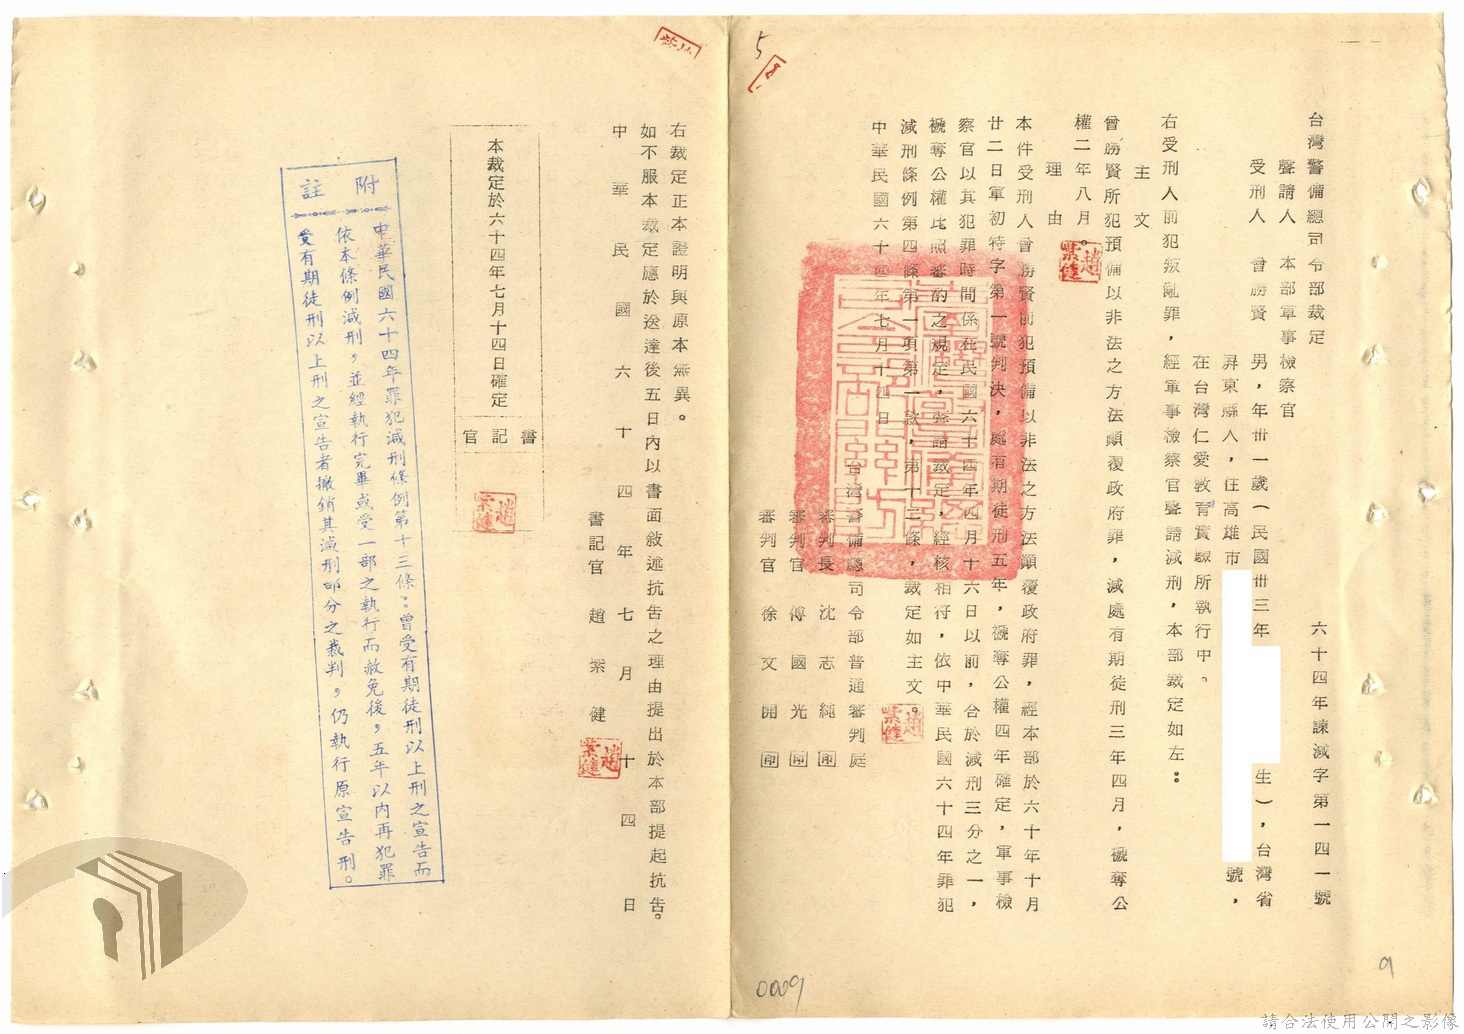 台灣警備總司令部裁定
六十四年諫減字第一四一號
聲請人 本部軍事檢察官
受刑人 曾勝賢 男，年卅一歲（民國卅三年 生），台灣省
屏東縣人，住高雄市 號，
在台灣仁愛教育實驗所執行中。
右受刑人前犯叛亂罪，經軍事檢察官聲請減刑，本部裁定如左：
主文
曾勝賢所犯預備以非法之方法顛覆政府罪，減處有期徒刑三年四月，褫奪公
權二年八月。
理由
本件受刑人曾勝賢前犯預備以非法之方法顛覆政府罪，經本部於六十年十月
廿二日軍初特字第一號判決，處有期徒刑五年，褫奪公權四年確定，軍事檢
察官以其犯罪時間係在民國六十四年四月十六日以前，合於減刑三分之一，
褫奪公權比照審酌之規定，聲請裁定，經核相符，依中華民國六十四年罪犯
減刑條例第四條第一項第一款，第十二條，裁定如主文。
中華民國六十四年七月十四日
台灣警備總司令部普通審判庭
審判長 沈志純 印
審判官 傅國光 印
審判官 徐文開 印
趙紫健
趙紫健
5
9
0009
右裁定正本證明與原本無異。
如不服本裁定應於送達後五日內以書面敘述抗告之理由提出於本部提起抗告。
中華民國六十四年七月十四日
書記官 趙紫健
趙紫健
本裁定於六十四年七月十四日確定
書記官
趙紫健
附註
中華民國六十四年罪犯減刑條例第十三條：曾受有期徒刑以上刑之宣告而
依本條例減刑，並經執行完畢或受一部之執行而赦免後，五年以內再犯罪
受有期徒刑以上刑之宣告者撤銷其減刑部分之裁判，仍執行原宣告刑。
請合法使用公開之影像